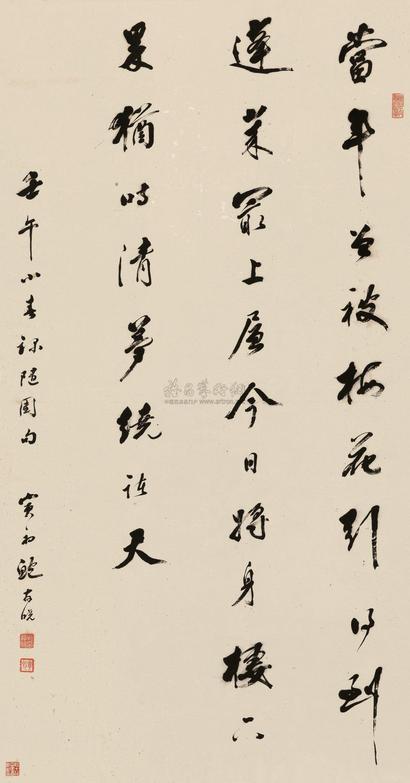 當年曾被梅花引得到
蓬萊最上層今日將身樓下
猶時清夢繞諸天
壬午小春錄隨園句 寅初鮑